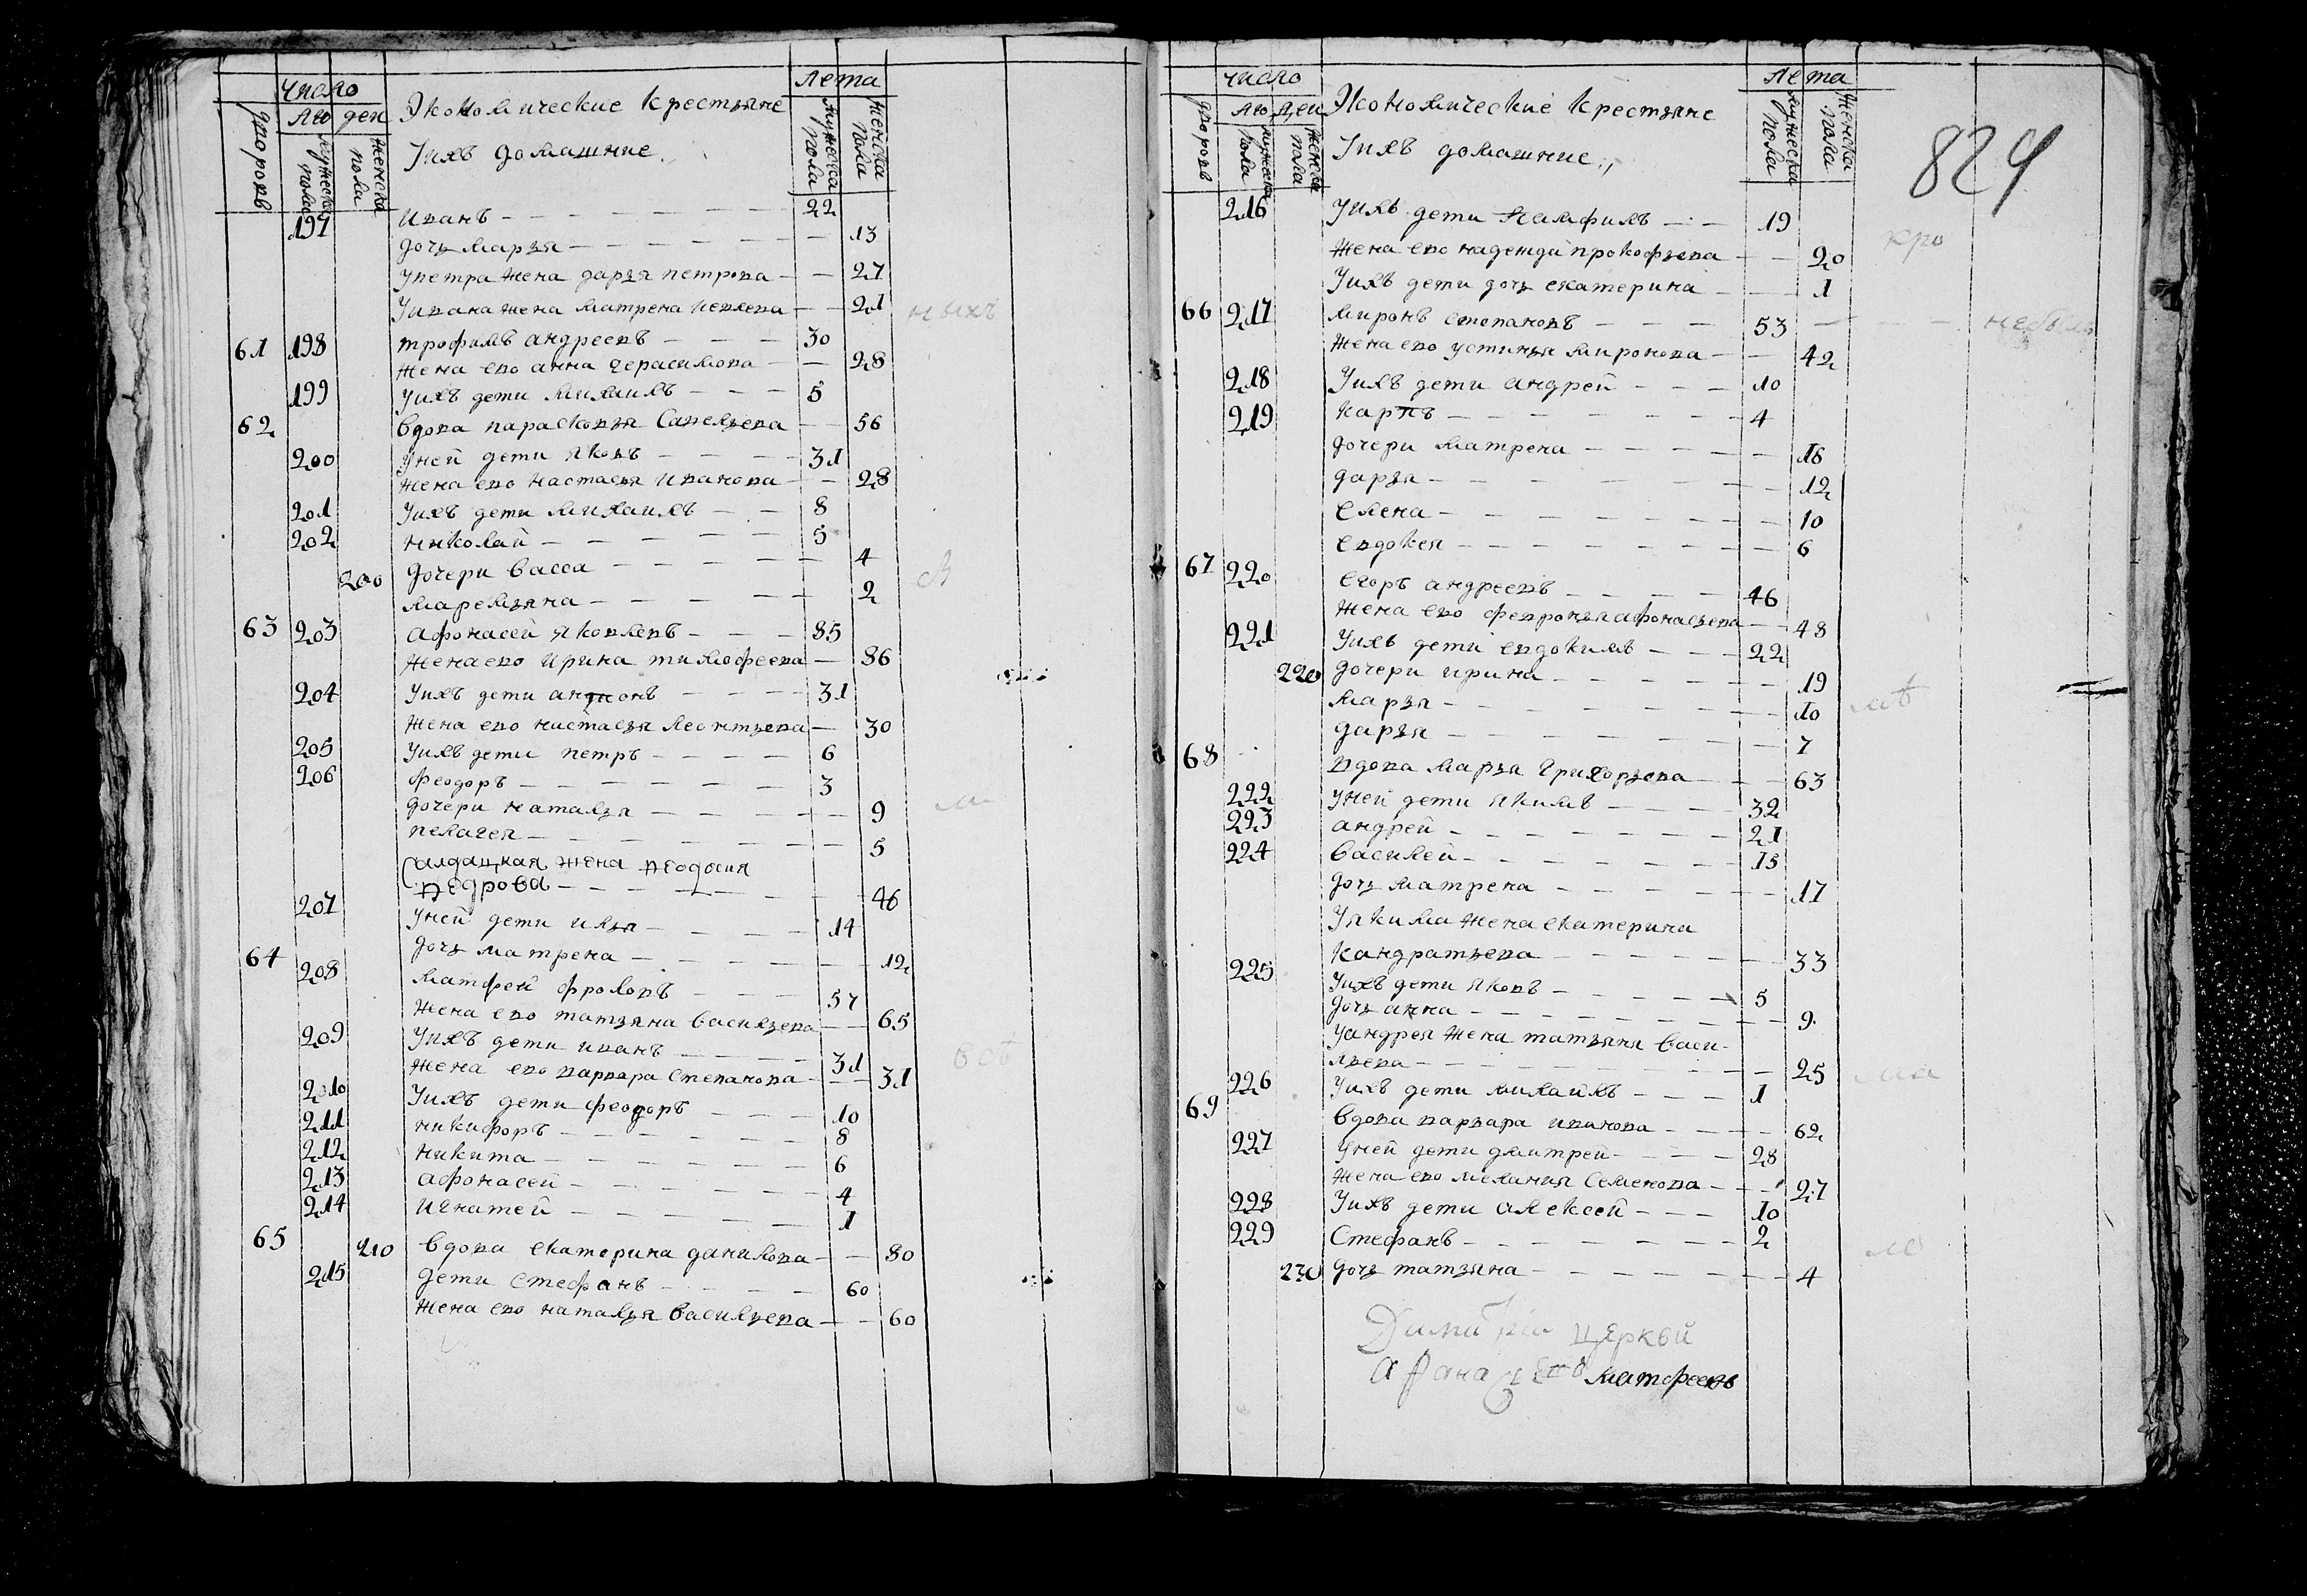 число лета
дворовъ лю ден Экономические крестьяне
мужеска пола женска пола Уихъ домашние мужеска пола женска пола
197 Иванъ 22
дочь марья 13
упетра жена дарья петрова 27
Уивана жена матрена иевлева 21
61 198 трофимъ андреевъ 30
жена ево анна герасимова 28
199 Уихъ дети михаилъ 5
62 вдова парасковья Савельева 56
200 Уней дети яковъ 31
жена ево настасья иванова 28
201 Уихъ дети михаилъ 8
202 николай 5
200 дочери васса 4
маремьяна 2
63 203 афонасей яковлевъ 85
жена ево ирина тимофеева 86
204 Уихъ дети антионъ 31
жена ево настасья леонтьева 30
205 Уихъ дети петръ 6
206 феодоръ 3
дочери наталья 9
пелагея 5
Салдацкая жена
207 46
Уней дети илья 14
дочь матрена 12
64 208 матфей фроловъ 57
жена ево татьяна васильева 65
209 Уихъ дети иванъ 31
жена ево варвара степанова 31
210 Уихъ дети феодоръ 10
211 никифоръ 8
212 никита 6
213 афонасей 4
214 игнатей 1
65 210 вдова екатерина данилова 80
215 дети стефанъ 60
жена ево наталья васильева 60
число лета
дворовъ лю деи Экономические крестьяне
мужеска пола женска пола Уихъ домашние мужеска пола женска пола
824
216 Уихъ дети памфилъ 19
жена ево надежда прокофьева 20
Уихъ дети дочь екатерина 1
66 217 миронъ степановъ 53
жена ево устинья миронова 42
218 Уихъ дети андрей 10
219 карпъ 4
дочери матрена 16
дарья 12
елена 10
евдокея 6
67 220 егоръ андреевъ 46
жена ево февронья афонасьева 48
221 Уихъ дети евдокимъ 22
220 дочери ирина 19
марья 10
дарья 7
68 вдова марья григорьева 63
222 уней дети якимъ 32
223 андрей 21
224 василей 15
дочь матрена 17
Уякима жена екатерина
кандратьева 33
225 Уихъ дети яковъ 5
дочь анна 9
Уандрея жена татьяна васи-
льева 25
226 Уихъ дети михаилъ 1
69 вдова варвара иванова 62
227 Уней дети дмитрей 28
жена ево мелания семенова 27
228 Уихъ дети алексей 10
229 Стефанъ 2
230 дочь татьяна 4
церкви
матфеевъ